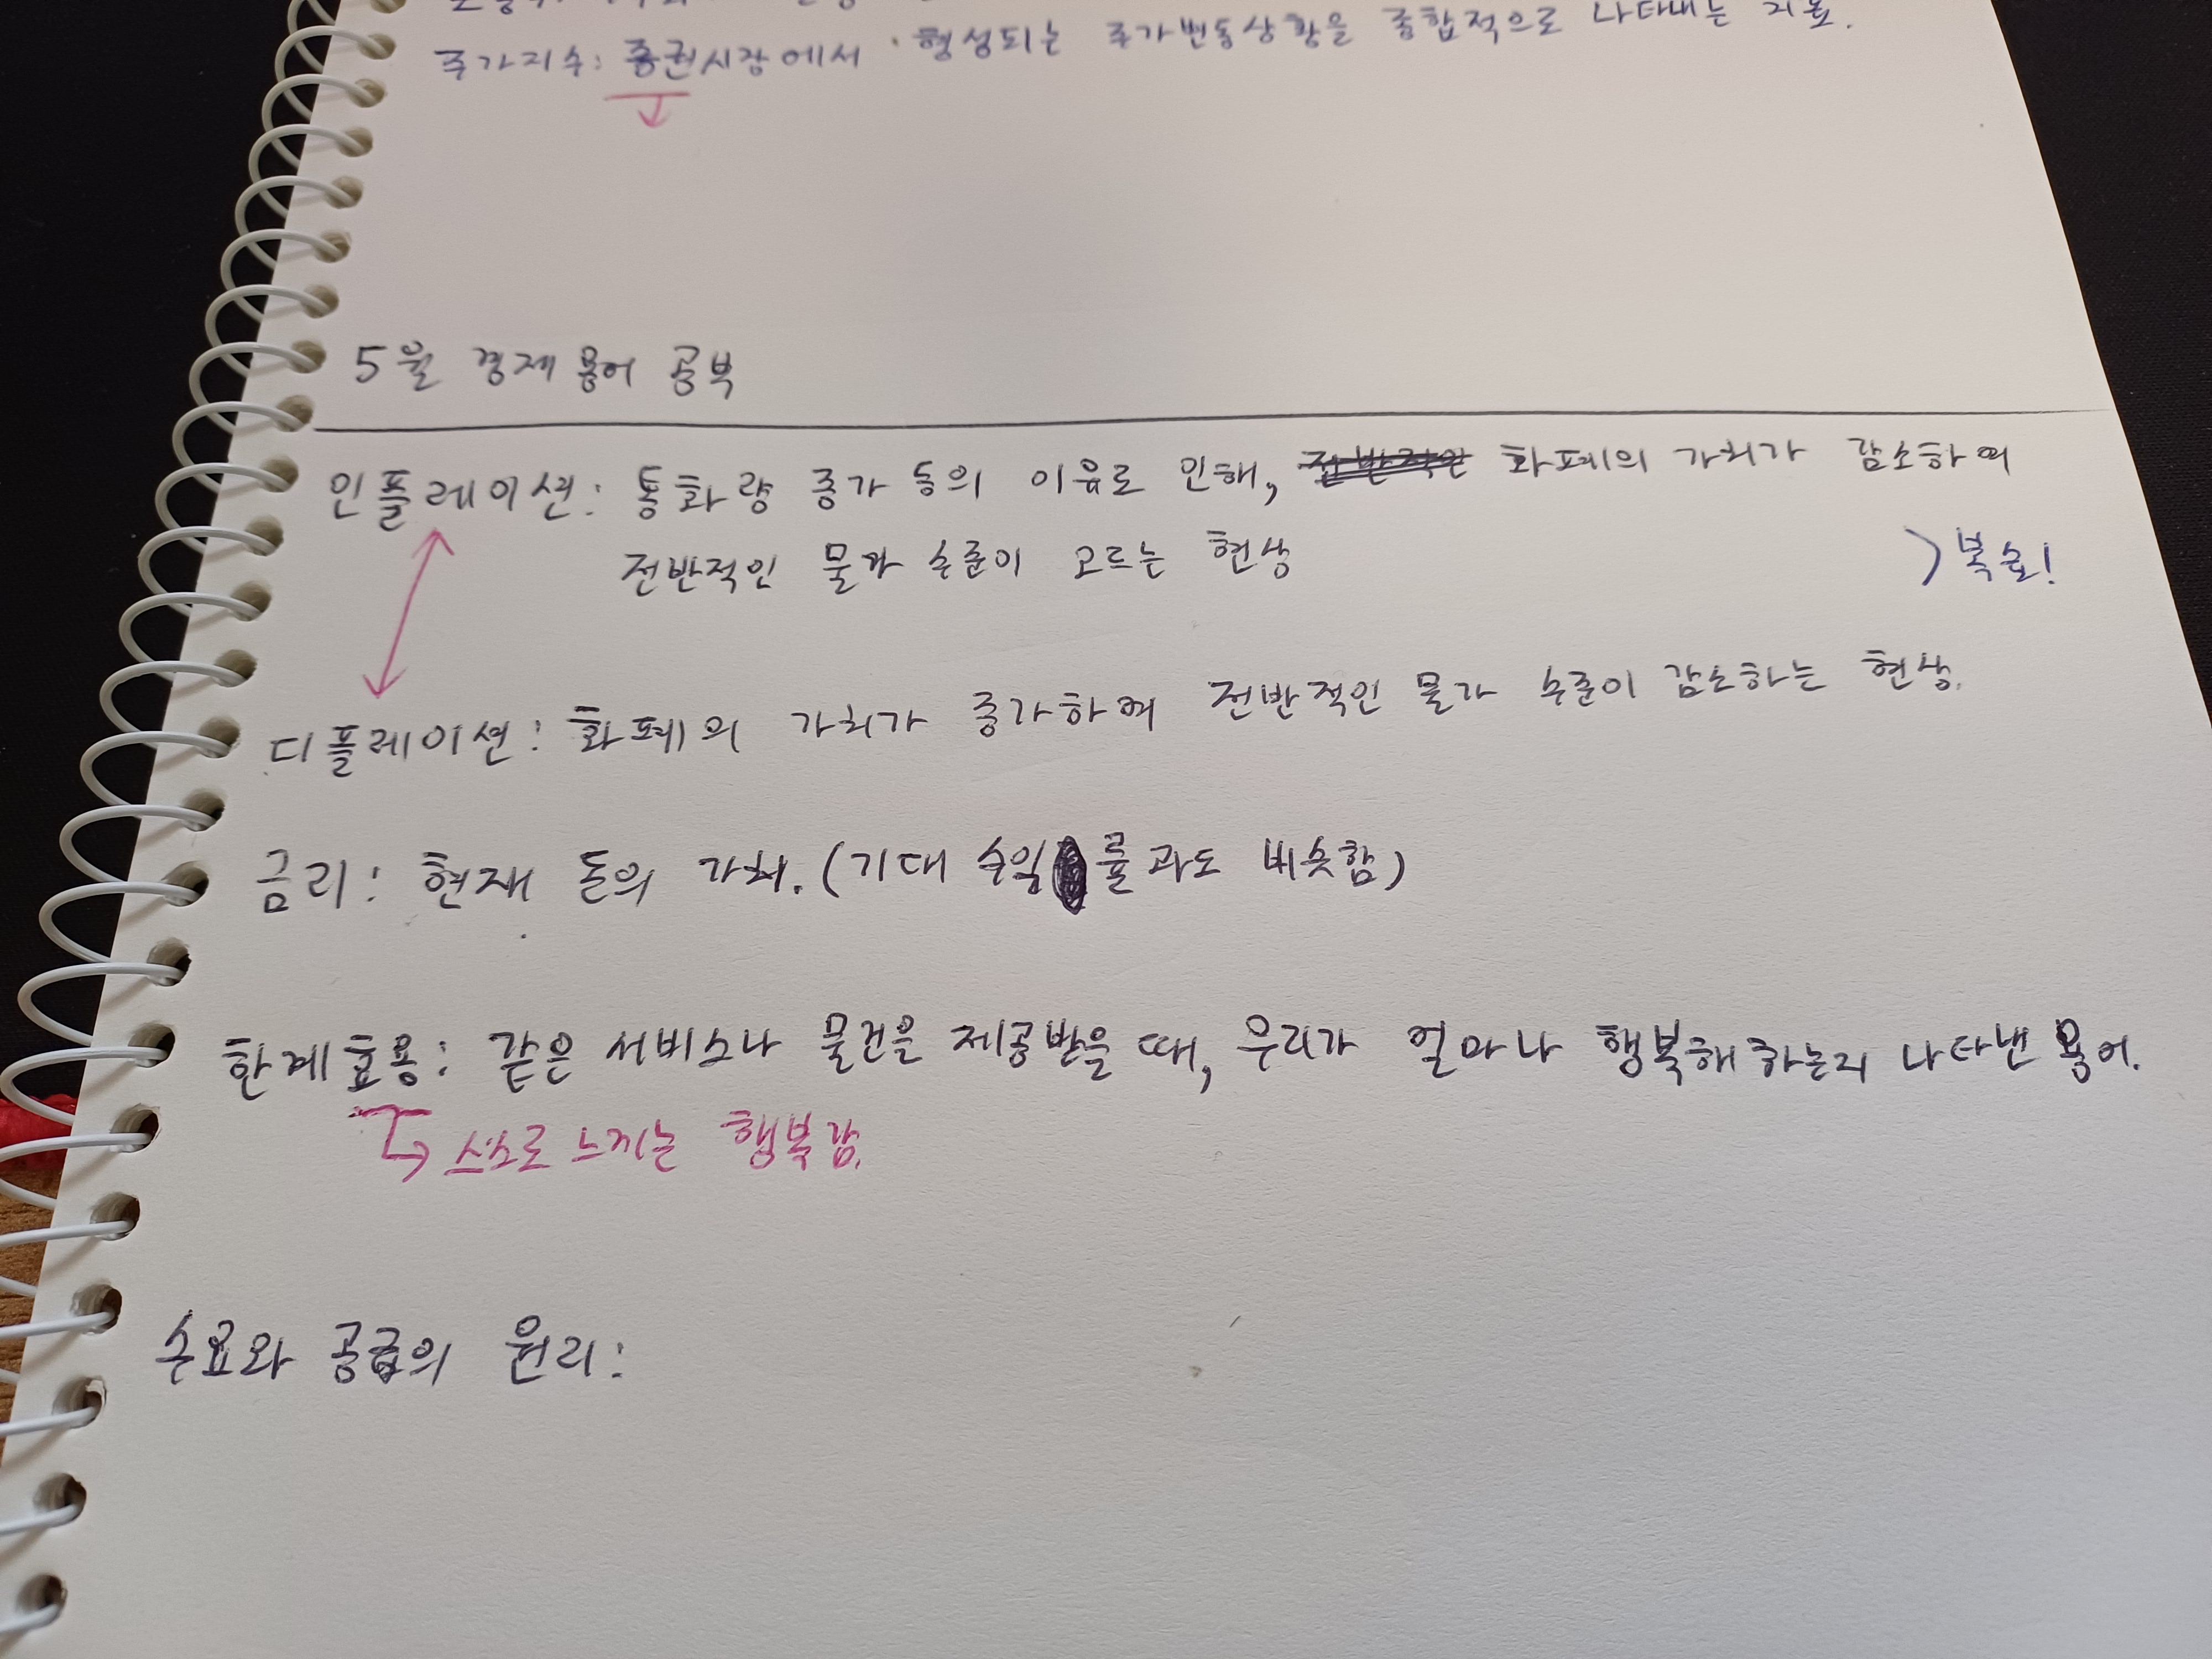 주가지수: 증권시장에서 형성되는 주가변동상황을 종합적으로 나타내는 지표.
5월 경제 용어 공부
인플레이션: 통화량 증가 등의 이유로 인해, 전반적인 화폐의 가치가 감소하여
전반적인 물가 수준이 오르는 현상
복습!
디플레이션: 화폐의 가치가 증가하여 전반적인 물가 수준이 감소하는 현상.
금리: 현재 돈의 가치. (기대 수익률과도 비슷함)
한계효용: 같은 서비스나 물건을 제공받을 때, 우리가 얼마나 행복해 하는지 나타낸 용어.
스스로 느끼는 행복감.
수요와 공급의 원리: